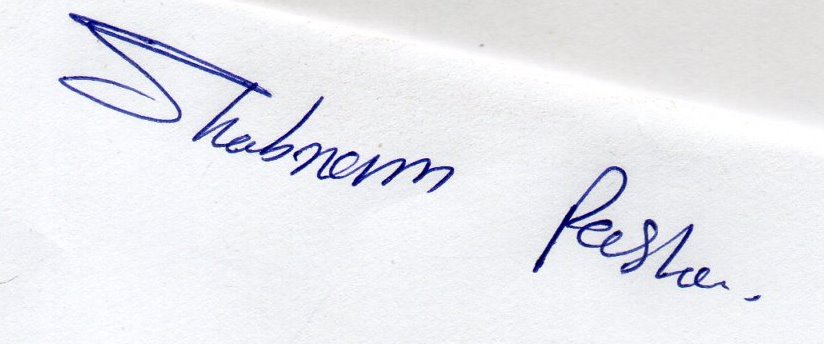 Shabnam Pasha.